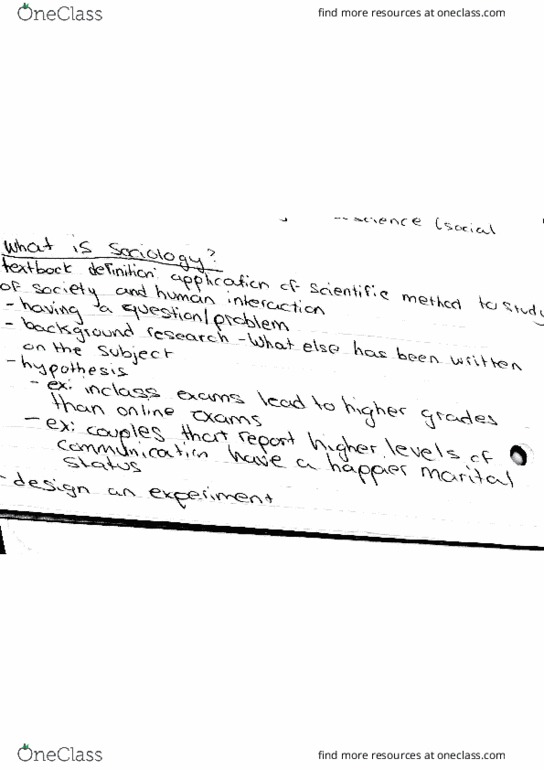 OneClass
find more resources at oneclass.com
science (social
What is Sociology?
textbook definition: application of scientific method to study
of society and human interaction
- having a question/problem
- background research - What else has been written
on the subject
- hypothesis
- ex: inclass exams lead to higher grades
than online exams
- ex: couples that report higher levels of
communication have a happier marital
status
- design an experiment
OneClass
find more resources at oneclass.com